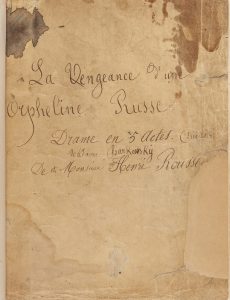 La Vengeance d'une
Orpheline Russe
Drame en 5 Actes.
Madame Barkowsky
De Monsieur Henri Rousse